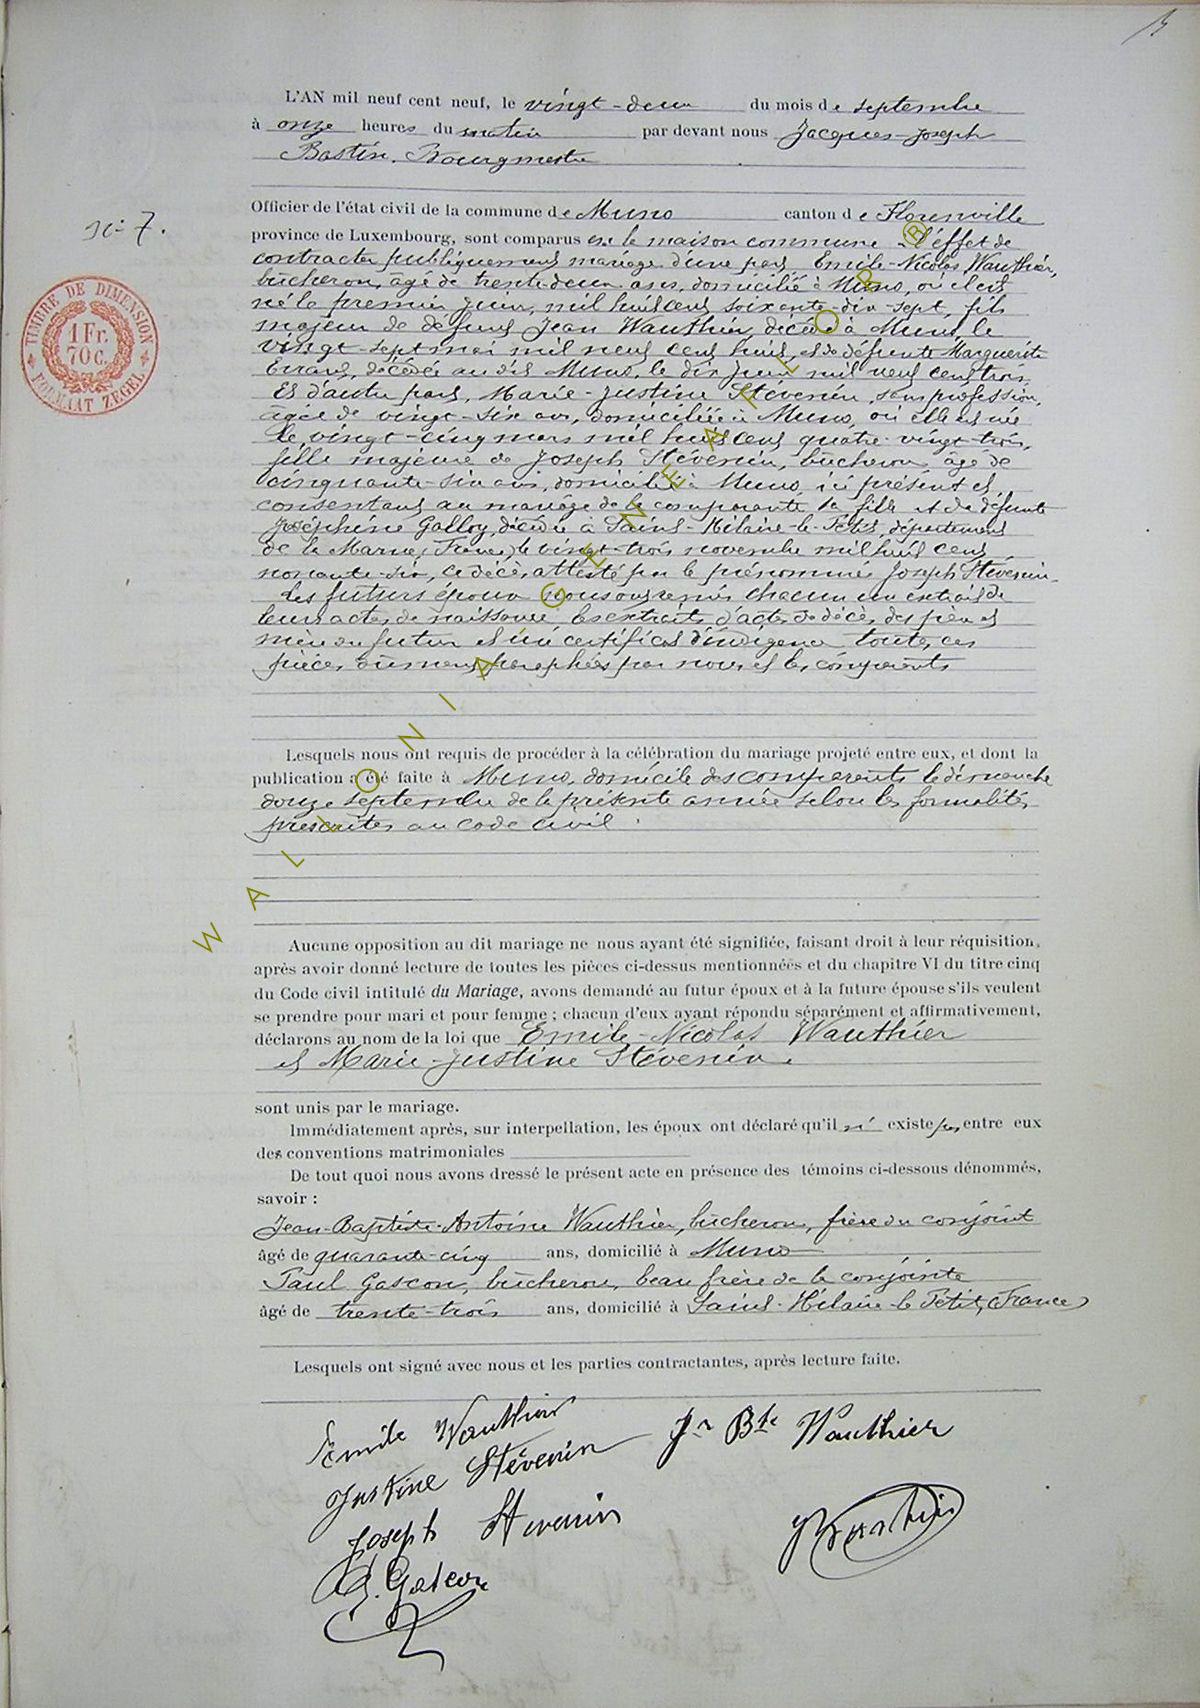 L'AN mil neuf cent neuf, le vingt-deux du mois de septembre
à onze heures du matin par devant nous Jacques-Joseph
Bastin, Bourgmestre
Officier de l'état civil de la commune de Muno canton de Florenville
N° 7.
province de Luxembourg, sont comparus en la maison commune à l'effet de
contracter publiquement mariage d'une part Emile-Nicolas Wauthier,
bûcheron, âgé de trente-deux ans, domicilié à Muno, où il est
né le premier juin mil huit cent soixante-dix-sept, fils
majeur de défunt Jean Wauthier, décédé à Muno, le
vingt-sept mai mil neuf cent huit, et de défunte Marguerite
décédée au dit Muno, le dix juin mil neuf cent trois.
Et d'autre part, Marie-Justine Stévenin, sans profession,
âgée de vingt-six ans, domiciliée à Muno, où elle est née
le vingt-cinq mars mil huit cent quatre-vingt-trois,
fille majeure de Joseph Stévenin, bûcheron, âgé de
cinquante-six ans, domicilié à Muno, ici présent et
consentant au mariage de la comparante sa fille et de défunte
Joséphine Galloy, décédée à Saint-Hilaire-le-Petit, département
de la Marne, (France) le vingt-trois novembre mil huit cent
nonante-six, ce décès attesté par le prénommé Joseph Stévenin.
Les futurs époux nous ont remis chacun un extrait de
leurs actes de naissance, les extraits d'actes de décès des père et
mère du futur et un certificat d'indigence toutes ces
pièces paraphées par nous et les comparants
Lesquels nous ont requis de procéder à la célébration du mariage projeté entre eux, et dont la
publication a été faite à Muno, domicile des comparants le dimanche
douze septembre de la présente année selon les formalités
prescrites au code civil.
Aucune opposition au dit mariage ne nous ayant été signifiée, faisant droit à leur réquisition,
après avoir donné lecture de toutes les pièces ci-dessus mentionnées et du chapitre VI du titre cinq
du Code civil intitulé du Mariage, avons demandé au futur époux et à la future épouse s'ils veulent
se prendre pour mari et pour femme ; chacun d'eux ayant répondu séparément et affirmativement,
déclarons au nom de la loi que Emile-Nicolas Wauthier
et Marie-Justine Stévenin.
sont unis par le mariage.
Immédiatement après, sur interpellation, les époux ont déclaré qu'il n' existe pas entre eux
des conventions matrimoniales
De tout quoi nous avons dressé le présent acte en présence des témoins ci-dessous dénommés,
savoir :
Jean-Baptiste-Antoine Wauthier, bûcheron, frère du conjoint
âgé de quarante-cinq ans, domicilié à Muno
Paul Gascon, bûcheron, beau frère de la conjointe
âgé de trente-trois ans, domicilié à Saint-Hilaire-le-Petit, (France)
Lesquels ont signé avec nous et les parties contractantes, après lecture faite.
Emile Wauthier
Jn Bte Wauthier
Justine Stévenin
Joseph Stevenin
J Bastin
P. Gascon
TIMBRE DE DIMENSION
1 Fr.
70 C.
FORMAAT ZEGEL
WALLONIA-GENEALOPRB